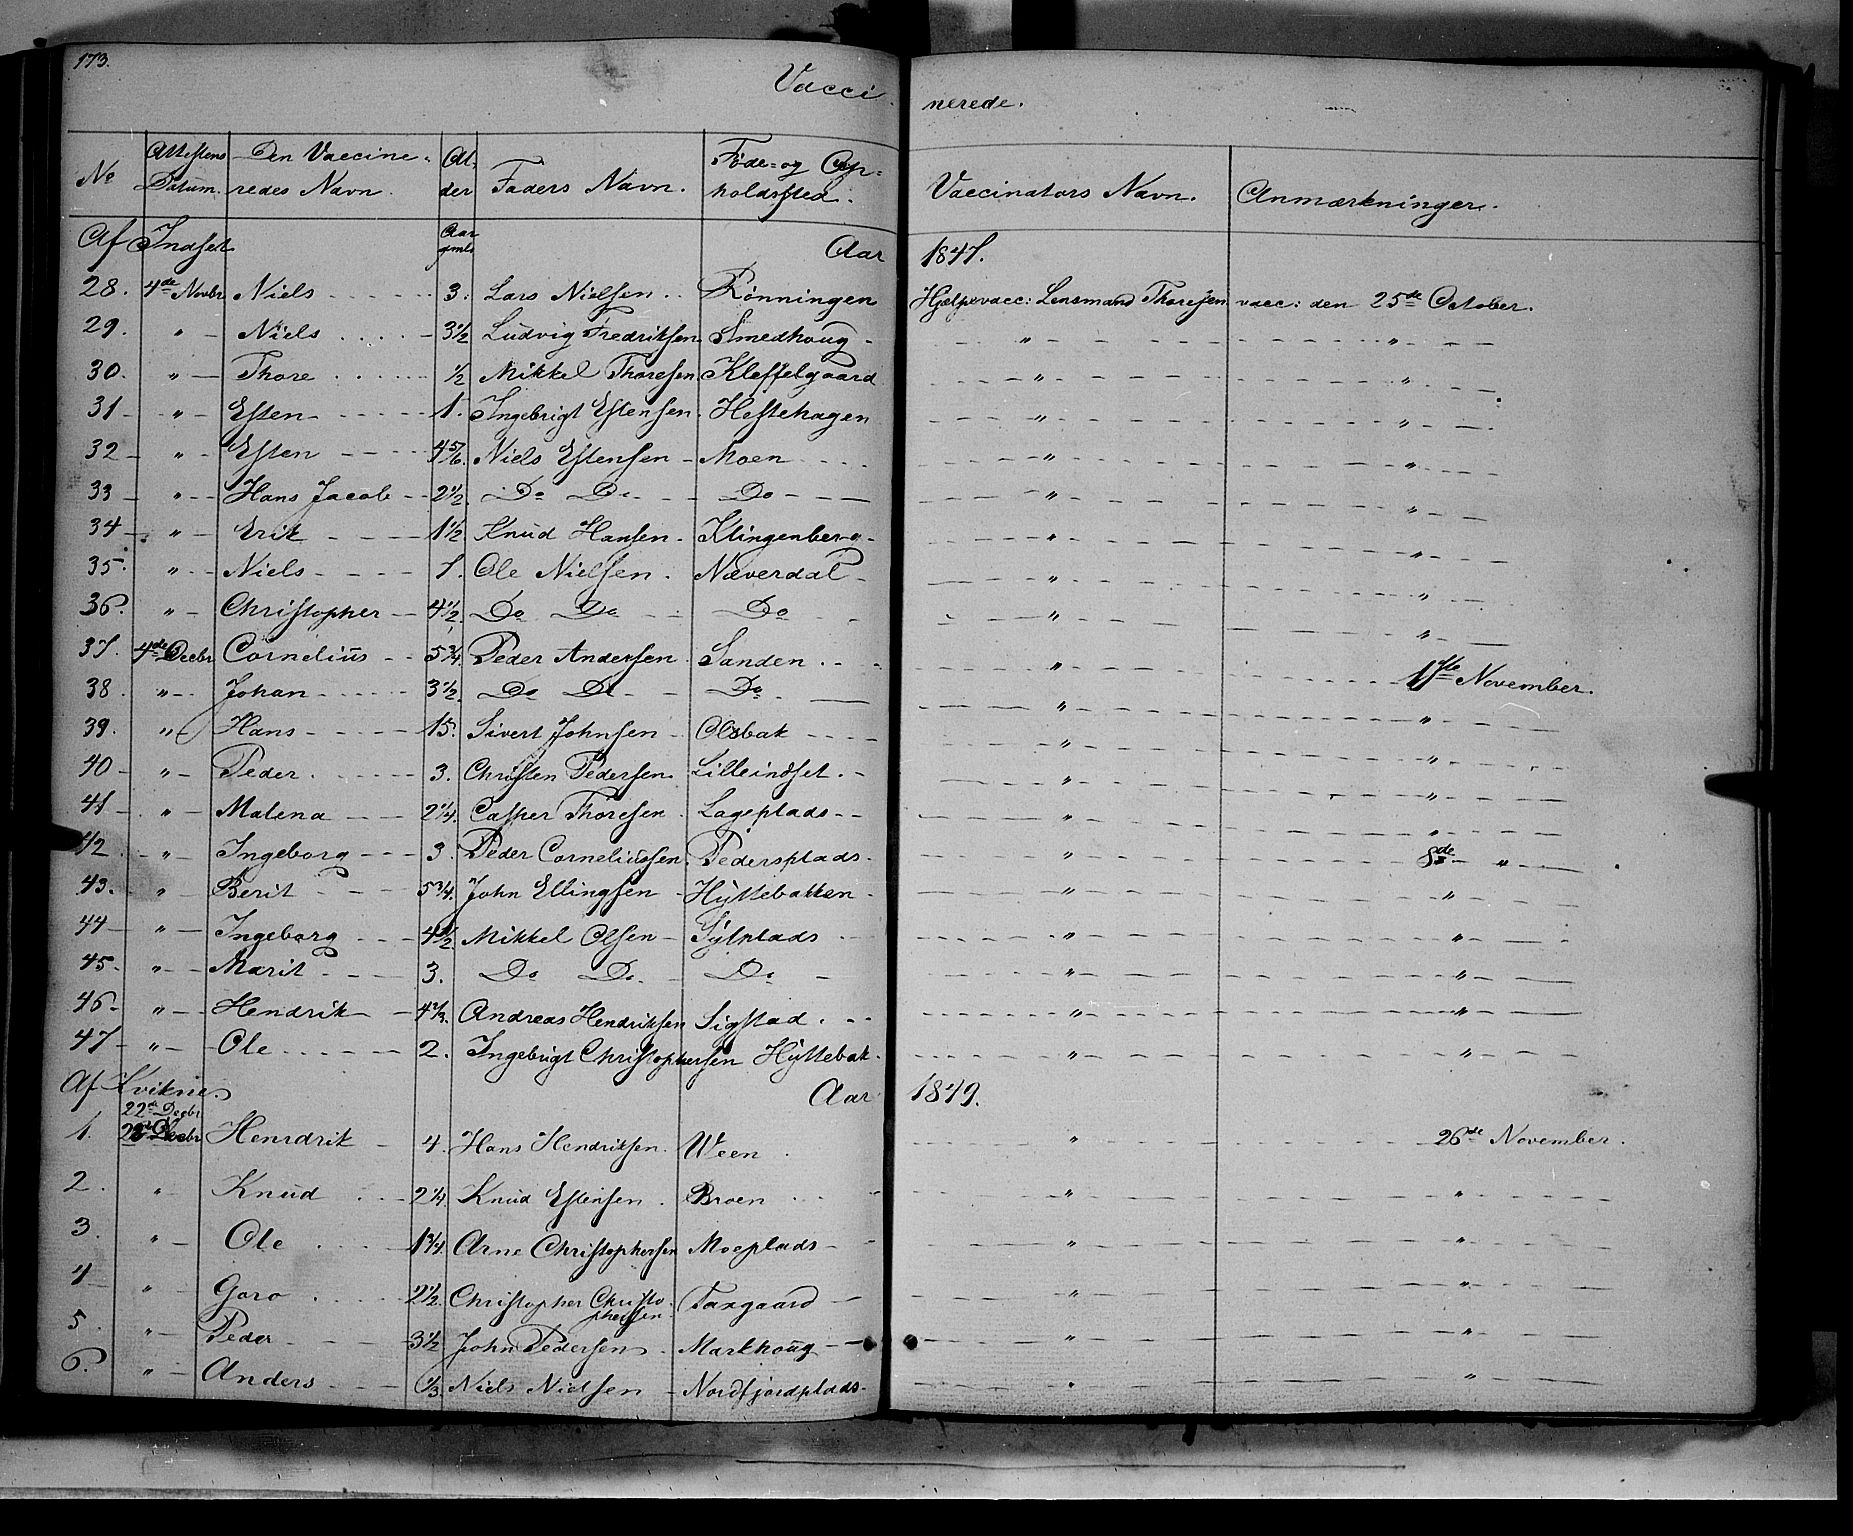 173.
Vacci- nerede.
No Attestens Datum. Den Vaccine- redes Navn. Al- der Faders Navn. Føde- og Op- holdssted. Vaccinators Navn. Anmærkninger.
Af Indset Aar gml. Aar 1847.
28. 4de Novbr Niels - - - - 3. Lars Nielsen. Rönningen Hjelpevacc: Lensmand Thoresen vacc: den 25de October.
29. " - Niels - - - - 3 1/2 Ludvig Fredriksen Smedhoug - " - - " -
30. " - Thore - - - - 1/2 Mikkel Thoresen Kleffelgaard - " - - " -
31 - " - Esten - - - - 1. Ingebrigt Estensen. Hestehagen - " - - " -
32 - " - Esten - - - - 4 5/6. Niels Estensen - Moen - - - " - - " -
33 - " - Hans Jacob - - 2 1/2. Do Do - - Do - - - " - - " -
34 - " - Erik - - - - 1 1/2 Knud Hansen - Klingenberg - - " - - " -
35. " - Niels - - - - 1. Ole Nielsen. Næverdal - - " - - " -
36. " - Christopher - 4 1/2. Do Do - Do - - " - - " -
37. 4de Decbr Cornelius - - 5 3/4 Peder Andersen Sanden - - - " - - 1ste November.
38. " - Johan - - - - 3 1/2. Do Do - - Do - - " - - " -
39. " Hans - - - - 15. Sivert Johnsen - Olsbak - - - - " - - " -
40 - " - Peder - - - - 3. Christen Pedersen. Lilleindset. - - " - - " -
41 - " - Malena - - - 2 1/4. Casper Thoresen. Lageplads - - - " - - " -
42. " - Ingeborg - - - 3. Peder Corneliussen. Pedersplads. - " - - 8de - " -
43. " - Berit - - - - 5 3/4. John Ellingsen - Hyttebakken - - " - - " -
44 - " - Ingeborg - - - 4 1/2. Mikkel Olsen - Sylplads - - " - - " -
45. " - Marit - - - - 3. Do Do - Do - - " - - " -
46. " - Hendrik - - 4 2/3. Andreas Hendriksen Sigstad. - - " - - " -
47 - " - Ole - - - - 2. Ingebrigt Christophersen Hyttebak. - " - - " -
Af Kvikne. Aar 1849.
22de Decbr
1. Hendrik - 4. Hans Hendriksen. Ween. - " - - 26de November.
2. " Knud - - - 2 1/4. Knud Estensen. Broen - - - " - - " -
3. " - Ole - - - 1 3/4. Arne Christophersen Moeplads - - " - - " -
4 " - Goro - - - 2 1/2. Christopher Christo- phersen Fargaard - - " - - " -
5. " - Peder - - - 3 1/2 John Pedersen. Markhoug - - " - - " -
6. " - Anders - - - 1/3. Niels Nielsen - Nordfjordplads - - " - - " -